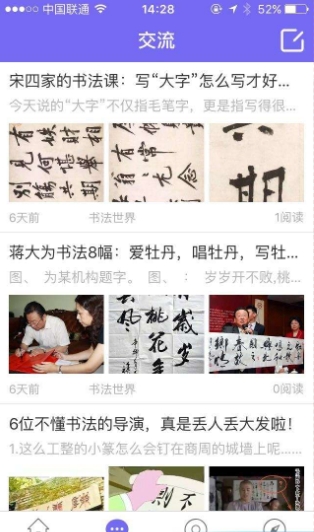 中国联通
14:28
52%
交流
宋四家的书法课：写“大字”怎么写才好...
今天说的“大字”不仅指毛笔字，更是指写得很...
6天前
书法世界
1阅读
蒋大为书法8幅：爱牡丹，唱牡丹，写牡...
图、 为某机构题字。 图、 ： 岁岁开不败,桃...
6天前
书法世界
0阅读
6位不懂书法的导演，真是丢人丢大发啦！
1.这么工整的小篆怎么会钉在商周的城墙上呢...